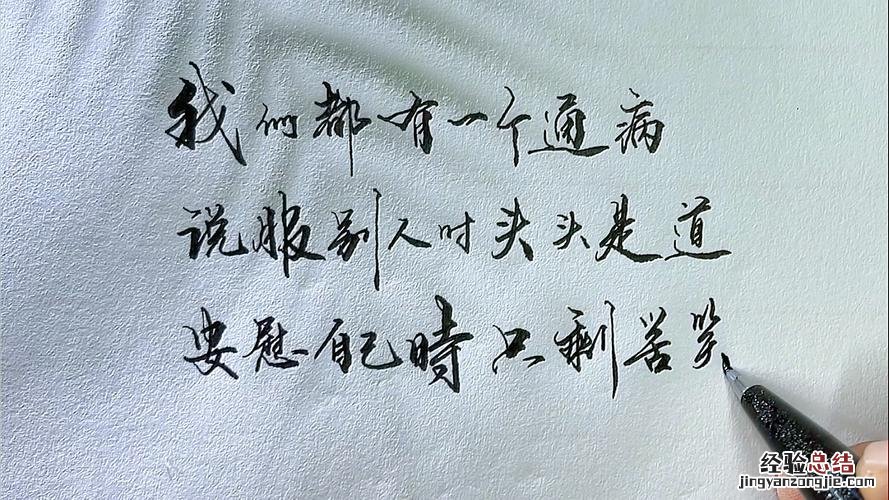 我们都有一个通病
说服别人时头头是道
安慰自己時只剩苦笑
经验总结
jingyanzongjie.com